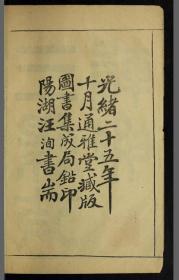 光緒二十五年
十月通雅堂藏版
圖書集成局鉛印
陽湖汪洵書耑